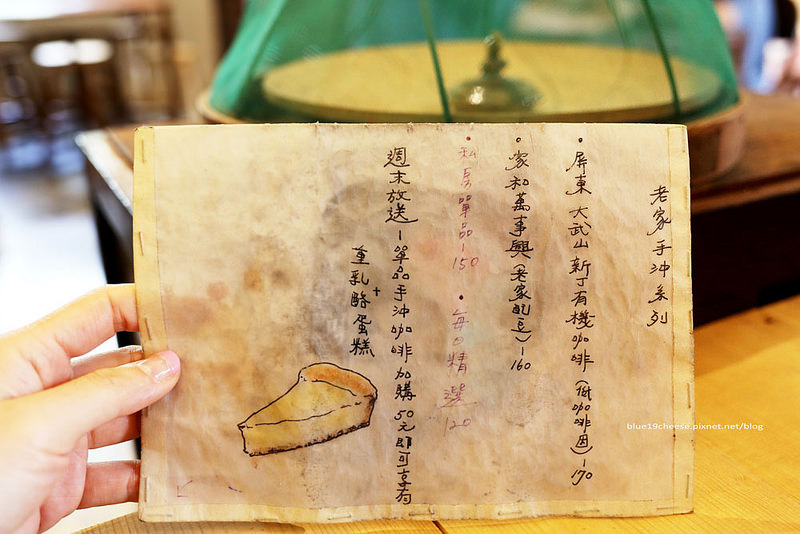 老家手沖系列
•屏東 大武山 新丁有機咖啡(低咖啡因)-170
•家和萬事興(畏家配豆)-160
•私房單品-150
•每日精選 120
週末放送-單品手沖咖啡加購50元即可享有
+
重乳酪蛋糕
blue19cheese.pixnet.net/blog